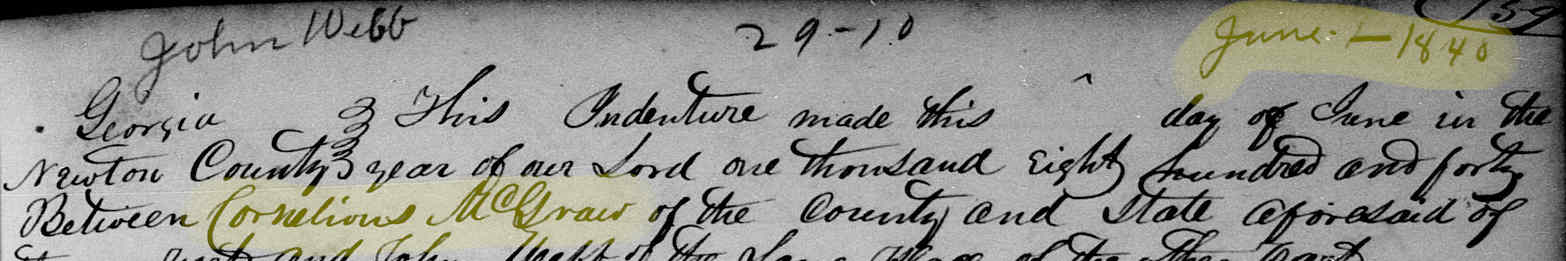 John Webb 29-10 June. 1 - 1840 159
Georgia } This Indenture made this ^ day of June in the
Newton County } year of our Lord one thousand Eight hundred and forty
Between Cornelious McGraw of the County and State aforesaid of
and John Webb of the Same Place of the other part